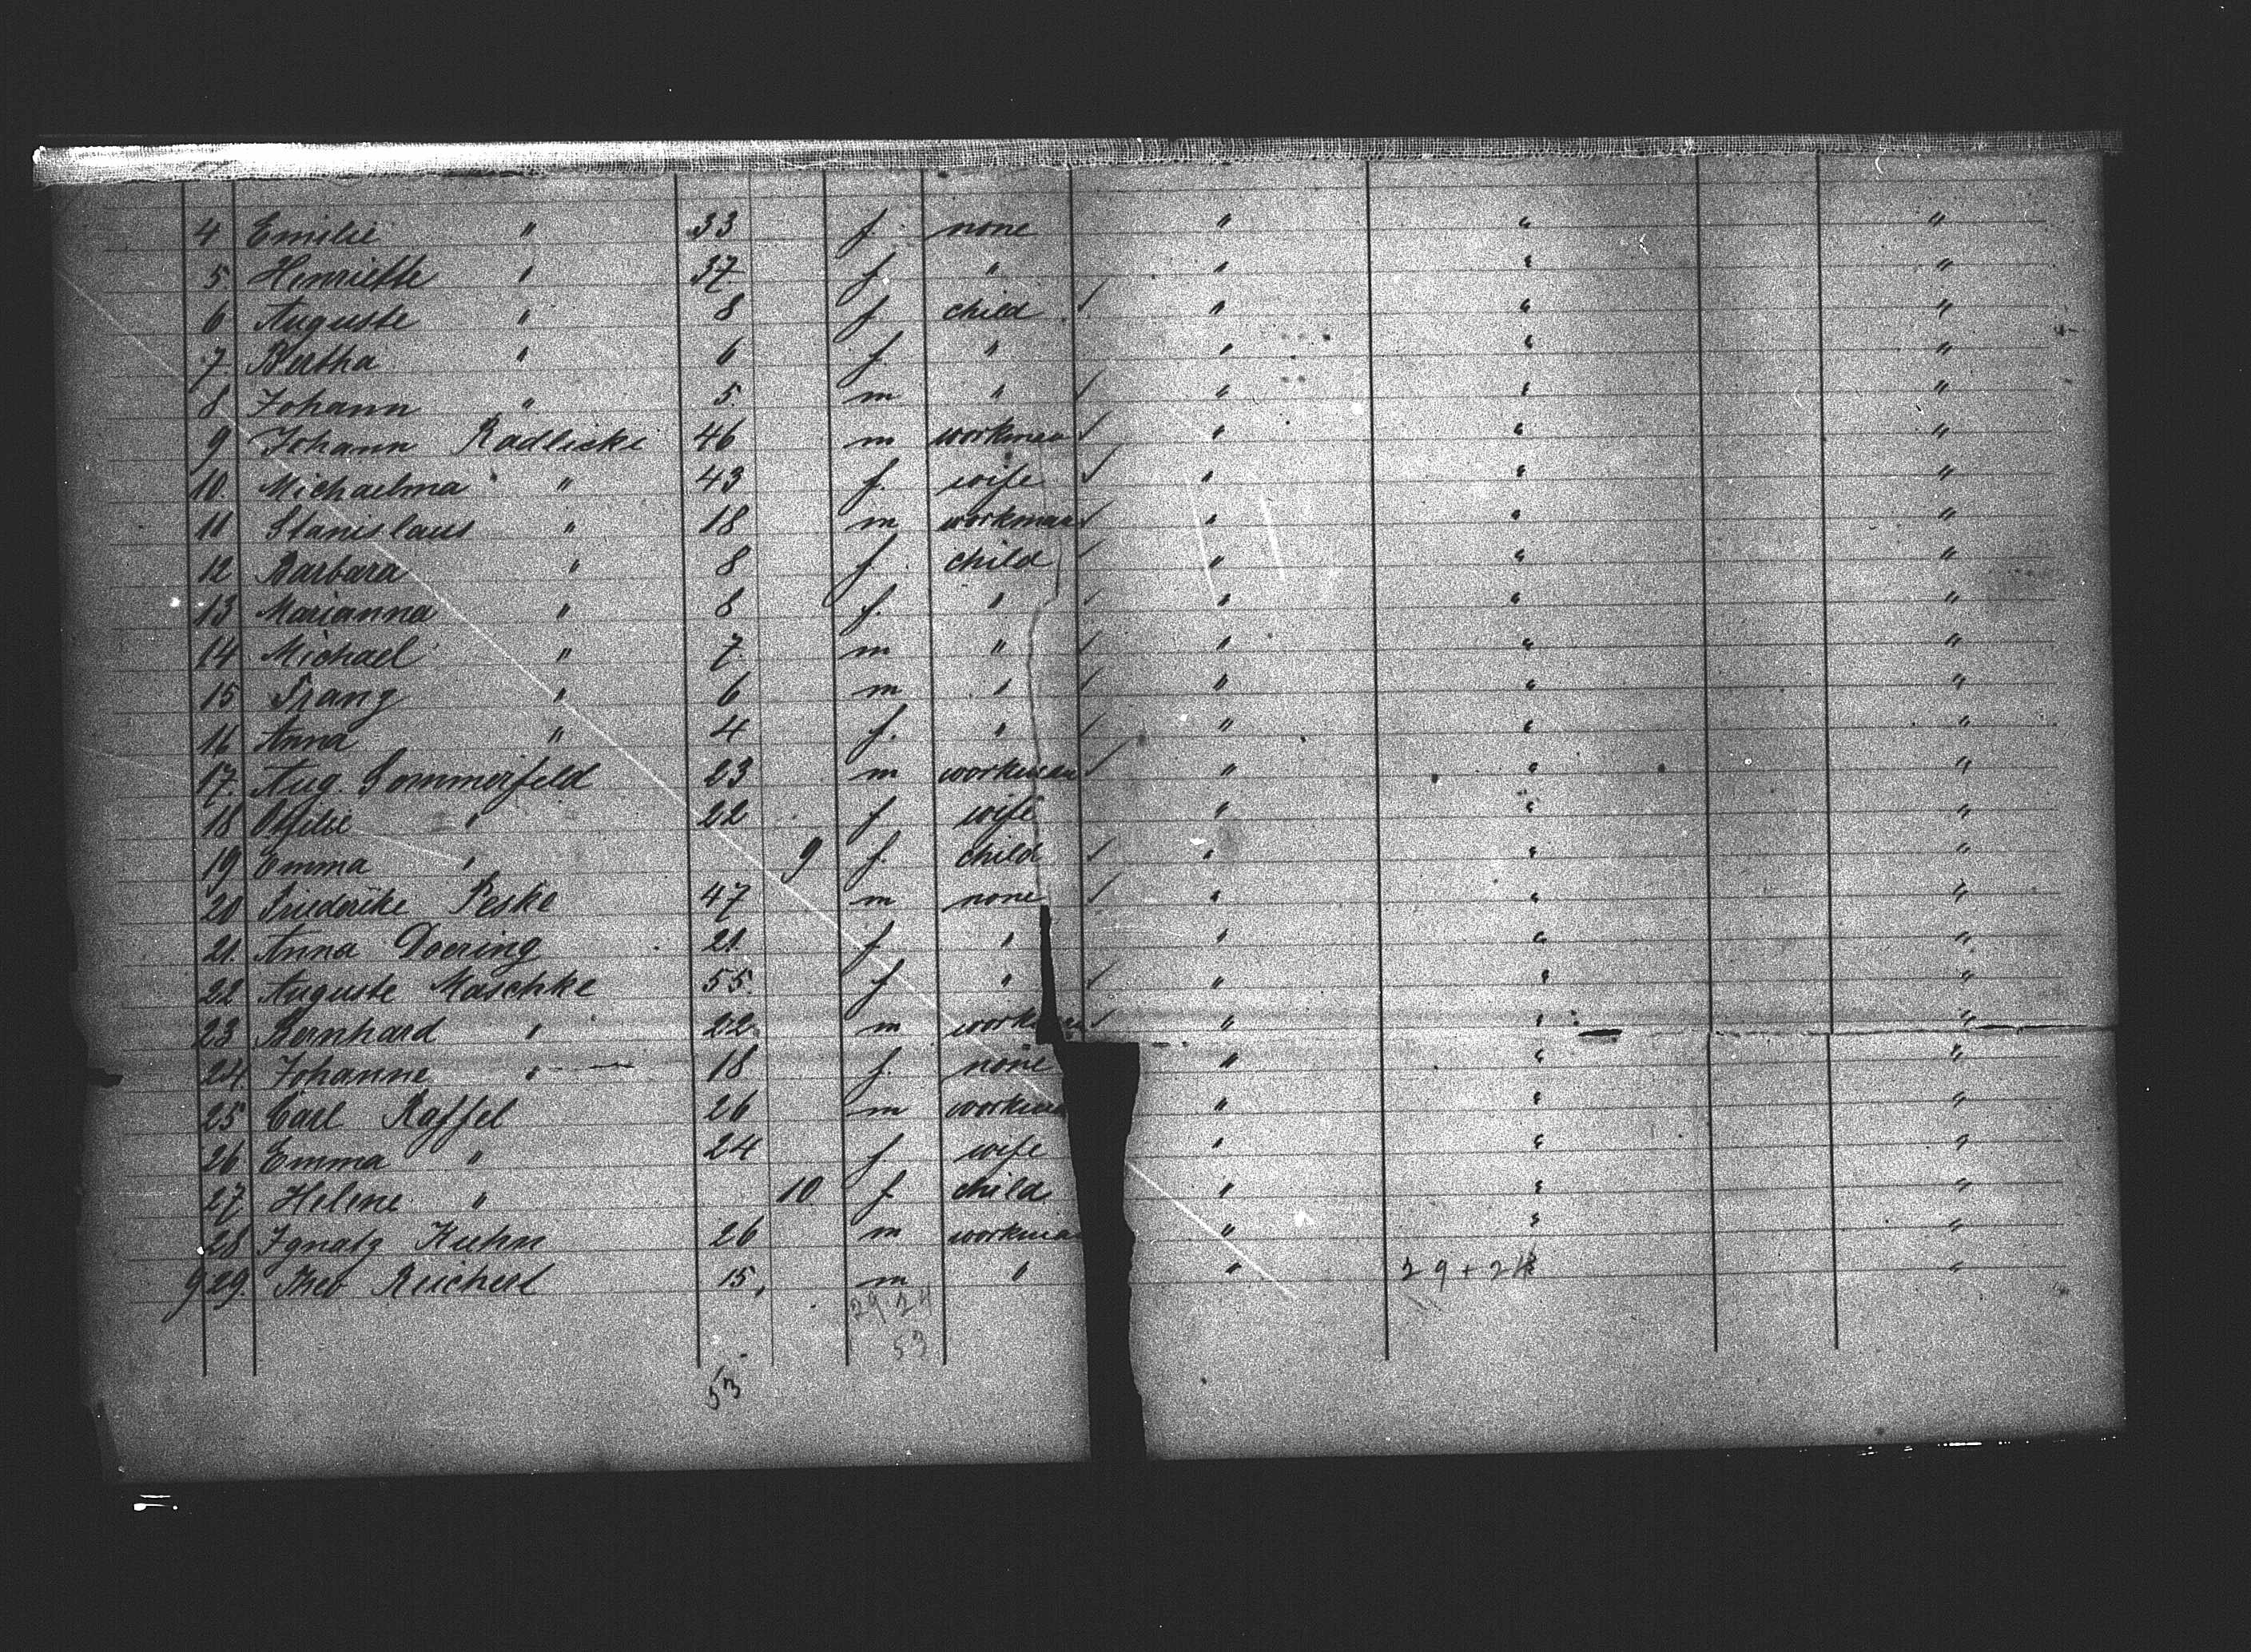 4 Emilie " 33 f. none " " "
5 Henriette " 37 f. " " " "
6 Auguste " 8 f. child ✓ " " "
7. Bertha " 6 f. " " " "
8 Johann " 5. m " ✓ " " "
9 Johann Radlicke 46 m workman ✓ " " "
10. Michaelina " 43 f. wife ✓ " " "
11 Stanislaus " 18 m workman ✓ " " "
12 Barbara " 8 f. child ✓ " " "
13 Marianna " 8 f. " ✓ " " "
14 Michael " 7 m " ✓ " " "
15 Franz " 6 m " ✓ " " "
16 Anna " 4 f. " ✓ " " "
17. Aug. Sommerfeld 23 m workman ✓ " " "
18 Ottilie " 22 f wife " " "
19 Emma " 9 f. child ✓ " " "
20 Friederike Peske 47 m none ✓ " " "
21. Anna Doering 21. f " " " "
22 Auguste Maschke 55. f " ✓ " " "
23 Bernhard " 22 m work ✓ " " "
24 Johanne " 18 f. none " " "
25 Carl Raffel 26 m workma " " "
26 Emma " 24 f. wife " " "
27 Helene " 10 f child " " "
28 Ignatz Kuhn 26 m workma " " "
9 29. Theo Reichert 15, m " " 29 + 24 "
29 24
53
53